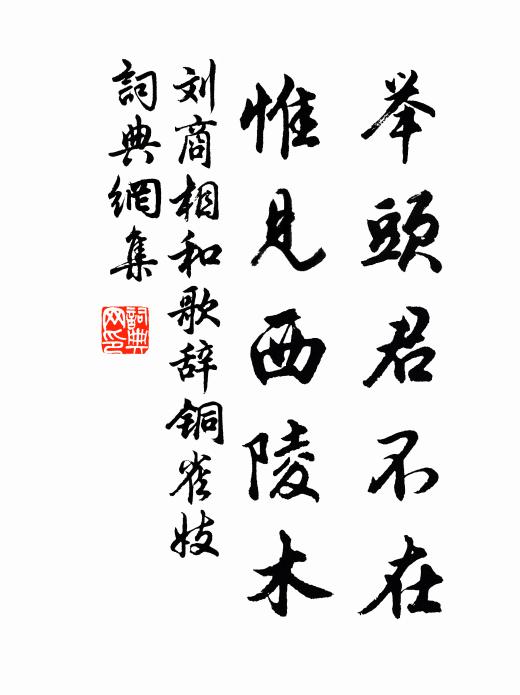 举頭君不在
惟見西陵木
刘商相和歌辞铜雀妓
詞典網集
詞典
网印